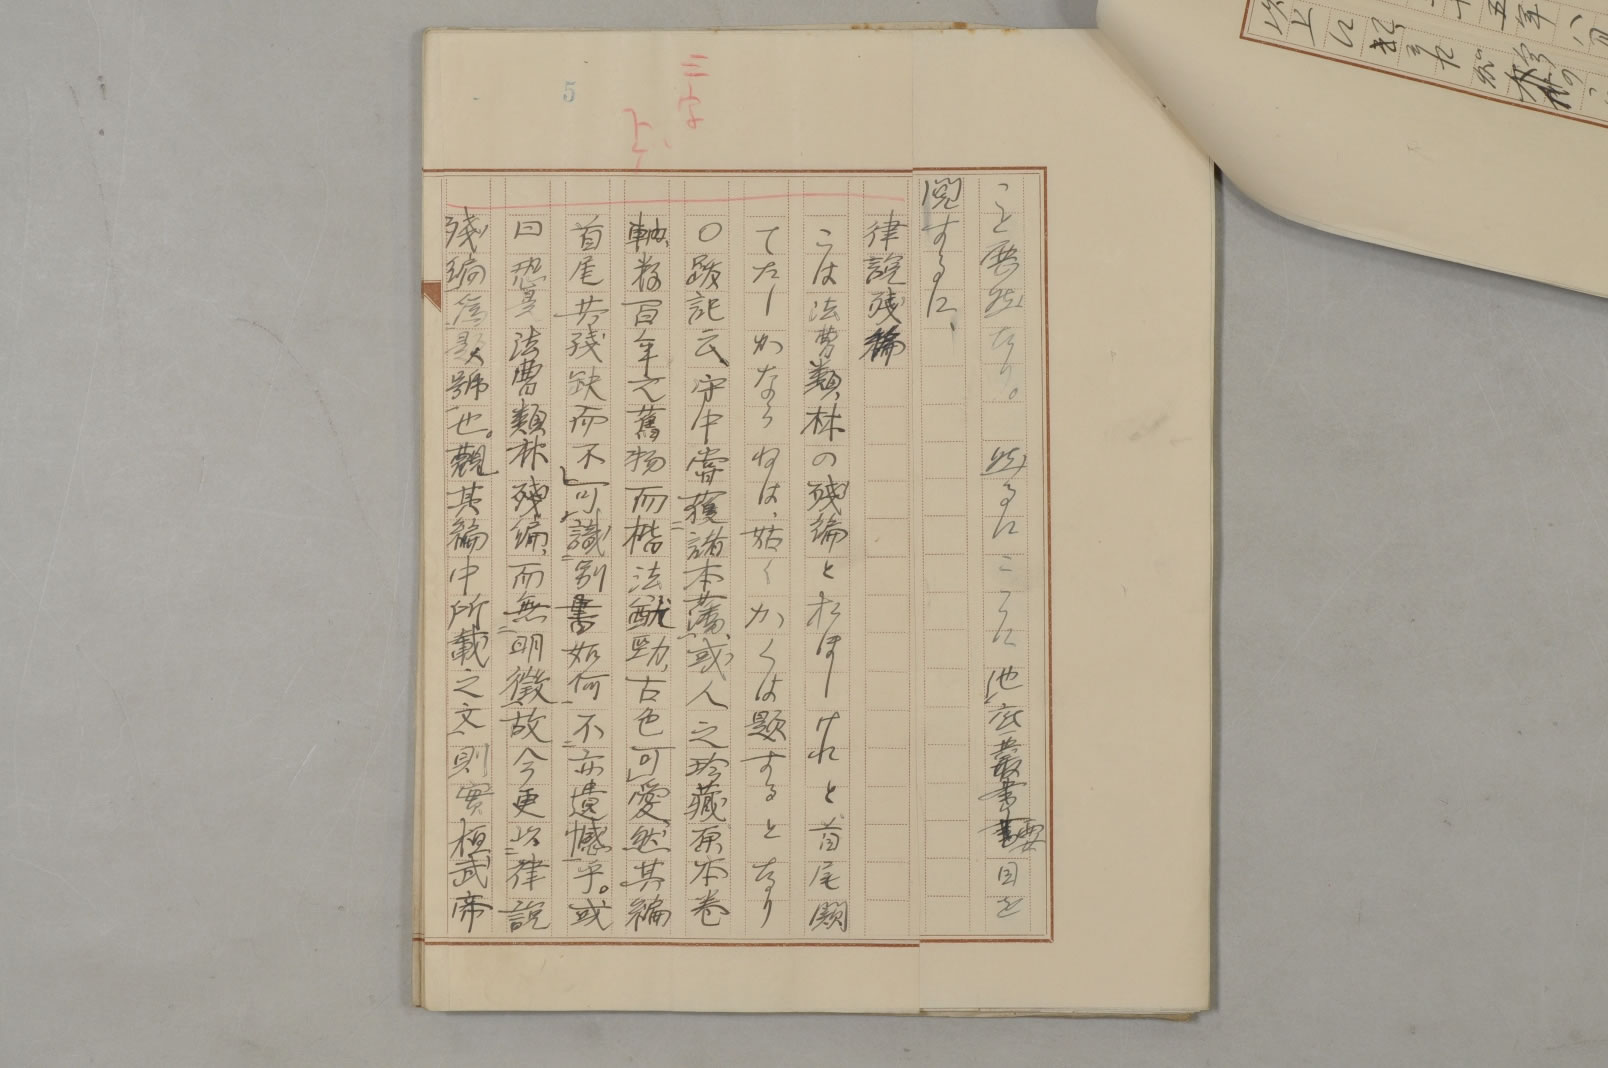 こと歴然たり。　然るにここに池底叢書要目を
閲するに、
律説残編
こは法曹類林の残編とおほしけれと首尾闕
てたしかならねは、姑くかくは題するとなり
〇跋記云、守中嘗獲諸本藩或人之珍藏原本卷
軸、数百年之舊物而楷法猷勁、古色可愛、然其編
首尾共残缺而不可識別書如何、不亦遺憾乎。或
曰恐是法曹類林残編、而無明徴故今更以律説
残編為題號也。觀其編中所載之文、則實桓武帝
三字
上ケ
5